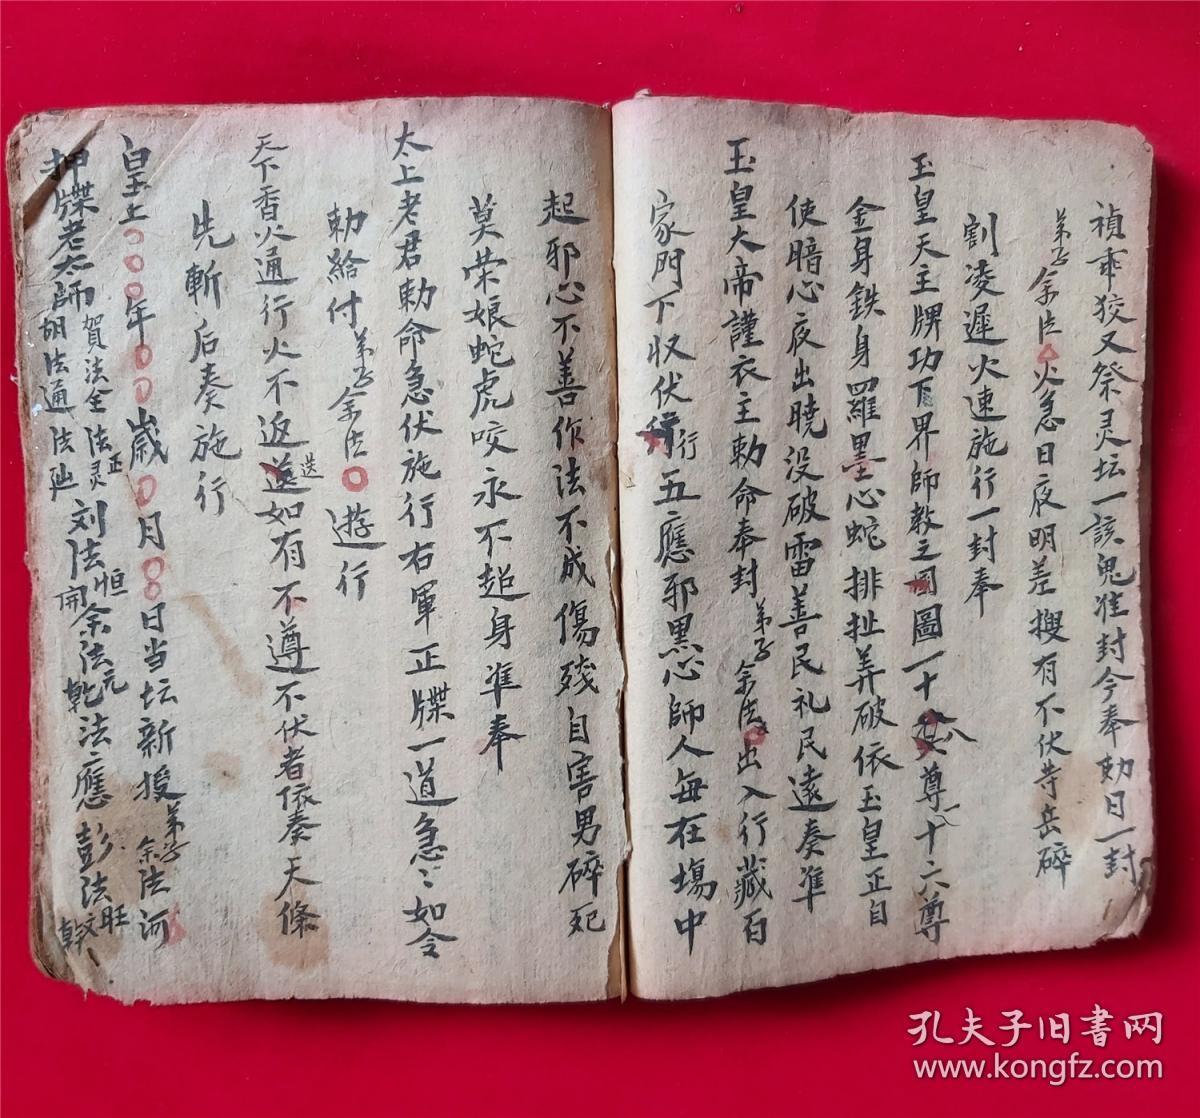 禎乖狡叉祭灵坛一該鬼准封今奉勅日一封
弟子余法〇火急日夜明差搜有不伏寺岳碎
割凌遲火速施行一封奉
玉皇天主牌功下界師教之圖一十八尊十六尊
金身鉄身羅墨心蛇排扯弄破依玉皇正自
使暗心夜出曉没破雷善民礼民遠奏准
玉皇大帝謹衣主勅命奉封弟子余法〇出入行藏百
家門下收伏行五應邪黑心師人每在場中
起邪心不善作法不成傷殘自害男碎死
莫荣娘蛇虎咬永不超身準奉
太上老君勅命急伏施行右軍正牒一道急〻如令
勅給付弟子余法〇遊行
天下香火通行火不返送如有不遵不伏者依奏天條
先斬后奏施行
皇上〇〇〇年〇〇歲〇月〇8日当坛新授弟子余法河
押牒老太師賀法全法正灵刘法恒余法元法應彭法旺
胡法通法 開乾文幹
孔夫子旧书网
www.kongfz.com